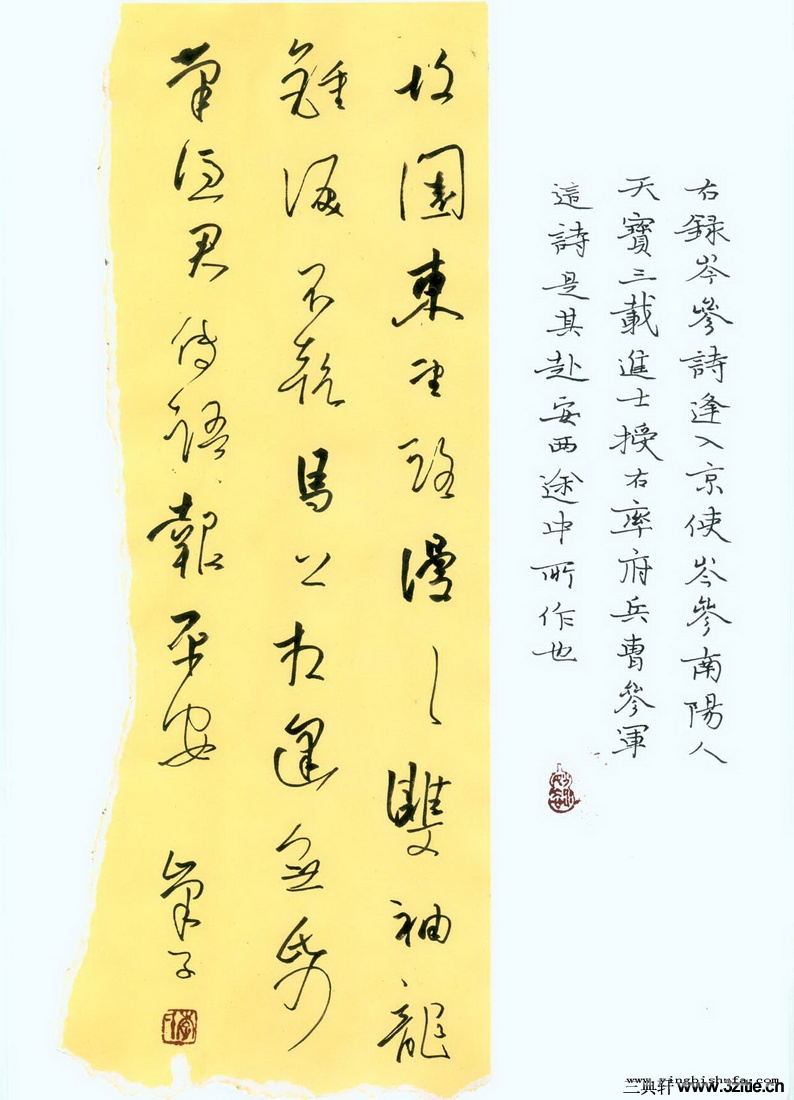 右録岑參詩逢入京使岑參南陽人
天寶三載進士授右率府兵曹參軍
這詩是其赴安西途中所作也
故園東望路漫々雙袖龍
鍾淚不乾馬上相逢無紙
筆憑君傳語報平安
www.yingbishufa.com
三典轩 www.3zitie.cn